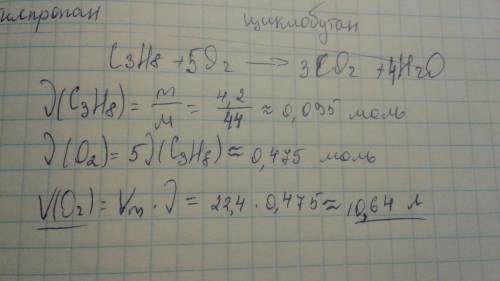 илпропан циклобутан
C3H8 + 5O2 → 3CO2 + 4H2O
ν(C3H8) = m/M = 4,2/44 ≈ 0,095 моль
ν(O2) = 5ν(C3H8) ≈ 0,475 моль
V(O2) = Vm · ν = 22,4 · 0,475 ≈ 10,64 л